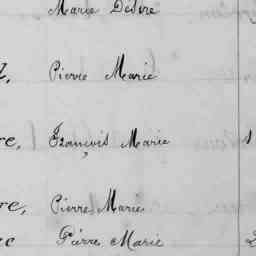 Marie Désire
Pierre Marie
re, François Marie
re, Pierre Marie
Pierre Marie